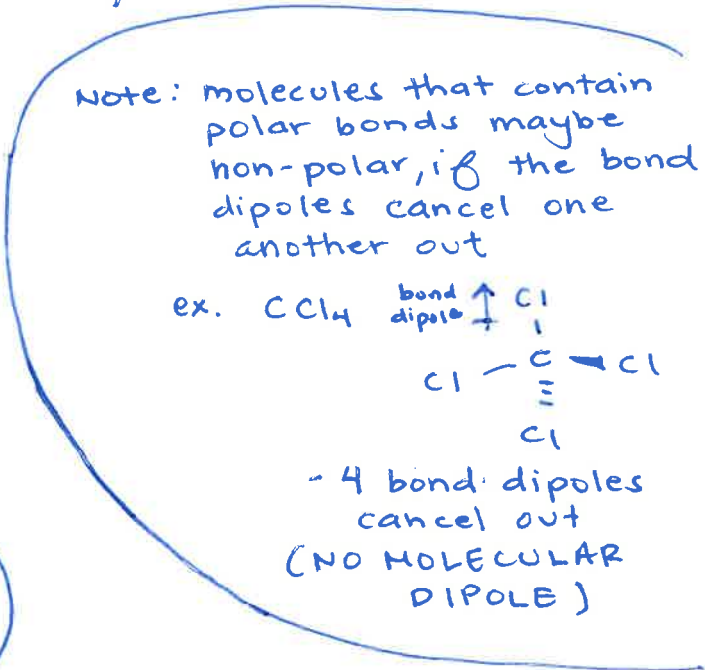 Note: molecules that contain
polar bonds maybe
non-polar, if the bond
dipoles cancel one
another out
ex. CCl4 bond dipole Cl
Cl C Cl
Cl
- 4 bond dipoles
cancel out
(NO MOLECULAR
DIPOLE)